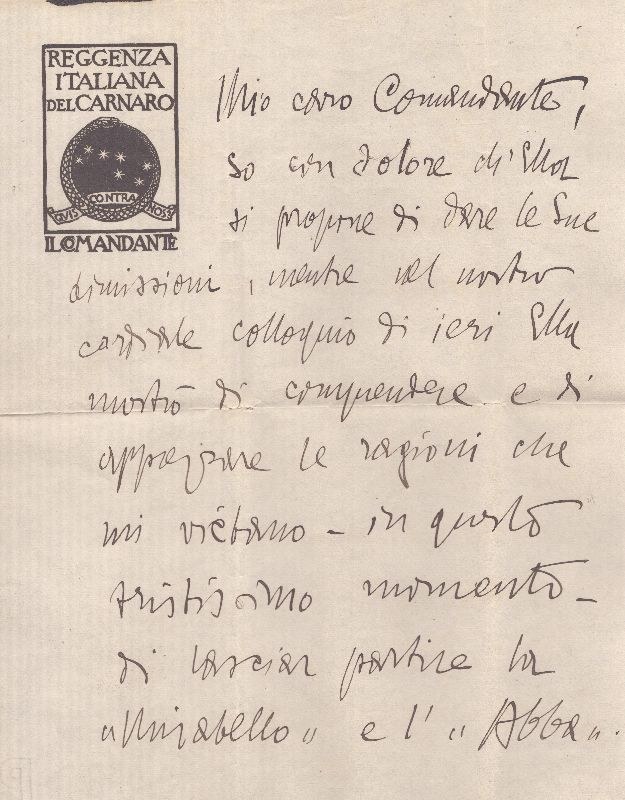 REGGENZA
ITALIANA
DEL CARNARO
QUIS CONTRA NOS
IL COMANDANTE
Mio caro Comandante,
so con dolore ch'Ella
si propone di dare le Sue
dimissioni, mentre nel nostro
cordiale colloquio di ieri Ella
mostrò di comprendere e di
apprezzare le ragioni che
mi viètano – in questo
tristissimo momento –
di lasciar partire la
„Mirabello" e l' „Abba".